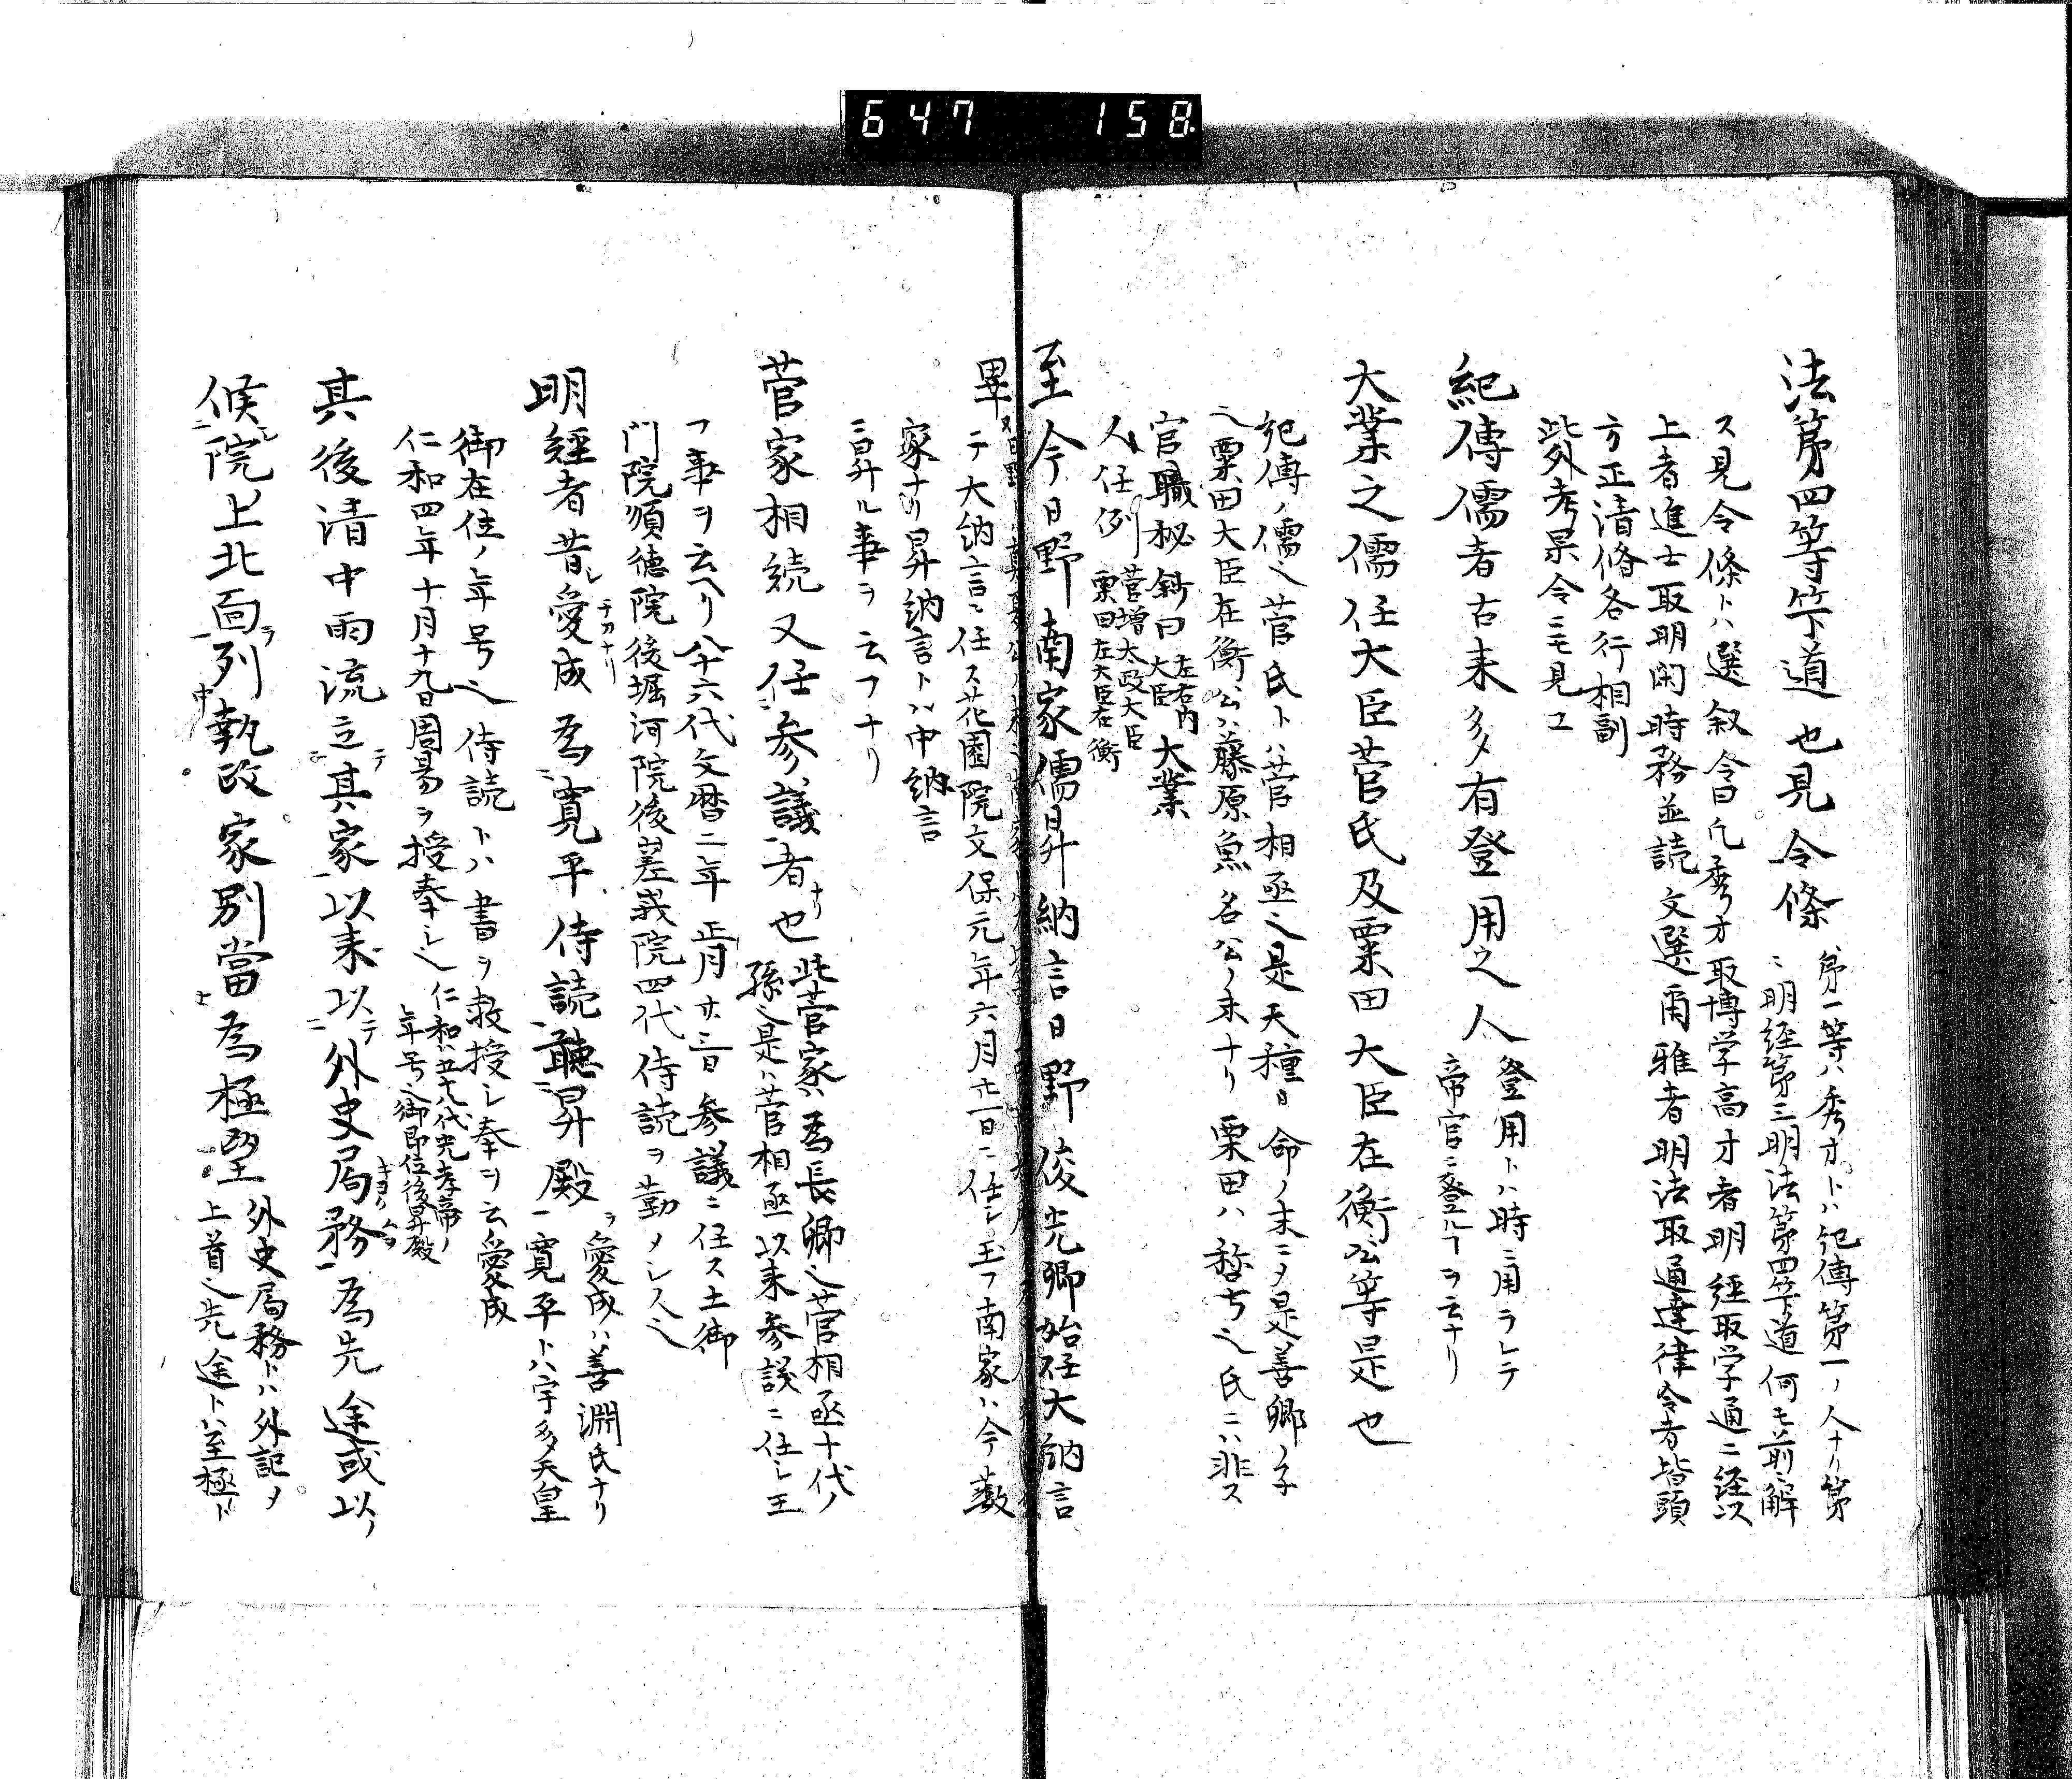 647 158
法第四等竿下道也見令條 第一等ハ秀才トハ紀傳第一ノ人ナリ第
ニ明経第三明法第四竿下道何モ前ニ解
ス見令條トハ選叙令曰凡秀才取博学高才者明経取学通二経以
上者進士取明閑時務並読文選尓雅者明法取通達律令者皆須
方正清脩名行相副
此外考课令ニモ見ユ
紀傳儒者古来多有登用之人 登用トハ時ニ用ラレテ
帝官ニ登ルヿヲ云ナリ
大業之儒任大臣菅氏及粟田大臣在衡公等是也
紀傳ノ儒也菅氏トハ菅相丞也是天種日命ノ末ニメ是善卿ノ子
也粟田大臣在衡公ハ藤原魚名公ノ末ナリ粟田ハ称号也氏ニハ非ス
官職秘鈔曰 左右内
大臣 大業
人任例 菅増太政大臣
粟田左大臣在衡
至今日野南家儒昇納言日野俊光卿始任大納言
畢
テ大納言ニ任ス花園院文保元年六月廿一日ニ任シ玉フ南家ハ今藪
家ナリ昇納言トハ中納言
ニ昇ル事ヲ云フナリ
菅家相続又任参議者也 此菅家ハ為長卿也菅相丞十代ノ
孫也是ハ菅相丞以来参議ニ任シ玉
フ事ヲ云ヘリ八十六代文暦二年正月廿三日参議ニ任ス土御
門院順徳院後堀河院後嵯峨院四代侍読ヲ勤メシ人也
明経者昔愛成為寛平侍読聴昇殿 愛成ハ善淵氏ナリ
寛平トハ宇多天皇
御在位ノ年号也侍読トハ書ヲ教授シ奉ヲ云愛成
仁和四年十月十九日周易ヲ授奉シ也 仁和ハ五十八代光孝帝ノ
年号也御即位後昇殿
其後清中両流立其家以来以外史局務為先途或以
候院上北面列執政家別當為極望 外史局務トハ外記ノ
上首也先途トハ至極ト